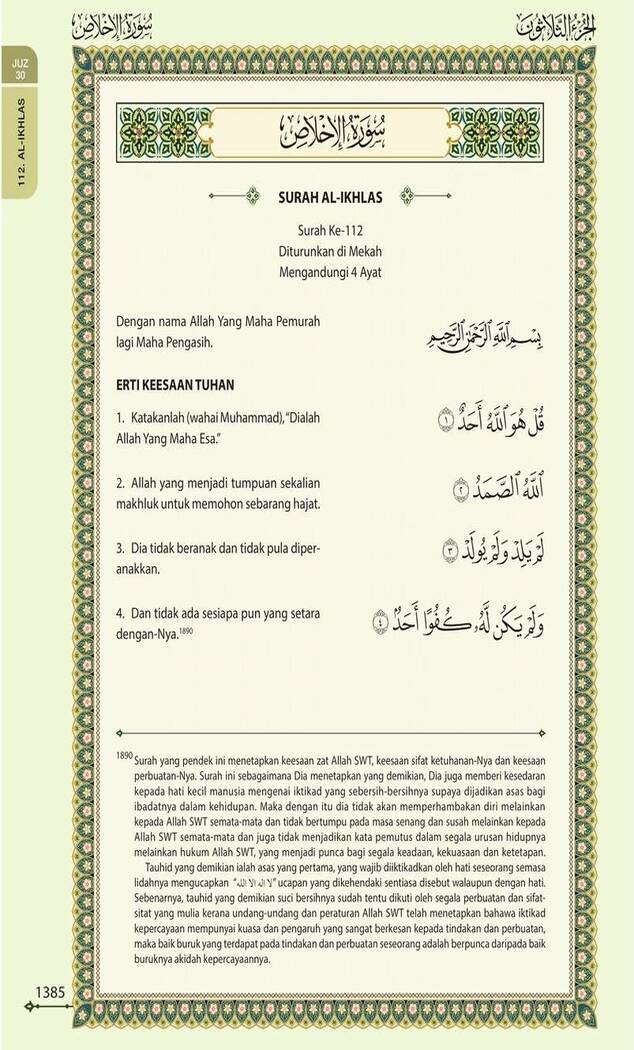 سُورَةُ الإِخْلَاصِ
الجُزْءُ الثَّلَاثُونَ
JUZ
30
112. AL-IKHLAS
سُورَةُ الإِخْلَاصِ
SURAH AL-IKHLAS
Surah Ke-112
Diturunkan di Mekah
Mengandungi 4 Ayat
Dengan nama Allah Yang Maha Pemurah
lagi Maha Pengasih.
بِسْمِ ٱللَّهِ ٱلرَّحْمَٰنِ ٱلرَّحِيمِ
ERTI KEESAAN TUHAN
1. Katakanlah (wahai Muhammad), “Dialah
Allah Yang Maha Esa.”
قُلْ هُوَ ٱللَّهُ أَحَدٌ ١
2. Allah yang menjadi tumpuan sekalian
makhluk untuk memohon sebarang hajat.
ٱللَّهُ ٱلصَّمَدُ ٢
3. Dia tidak beranak dan tidak pula diper-
anakkan.
لَمْ يَلِدْ وَلَمْ يُولَدْ ٣
4. Dan tidak ada sesiapa pun yang setara
dengan-Nya.1890
وَلَمْ يَكُن لَّهُۥ كُفُوًا أَحَدٌۢ ٤
1890 Surah yang pendek ini menetapkan keesaan zat Allah SWT, keesaan sifat ketuhanan-Nya dan keesaan
perbuatan-Nya. Surah ini sebagaimana Dia menetapkan yang demikian, Dia juga memberi kesedaran
kepada hati kecil manusia mengenai iktikad yang sebersih-bersihnya supaya dijadikan asas bagi
ibadatnya dalam kehidupan. Maka dengan itu dia tidak akan memperhambakan diri melainkan
kepada Allah SWT semata-mata dan tidak bertumpu pada masa senang dan susah melainkan kepada
Allah SWT semata-mata dan juga tidak menjadikan kata pemutus dalam segala urusan hidupnya
melainkan hukum Allah SWT, yang menjadi punca bagi segala keadaan, kekuasaan dan ketetapan.
Tauhid yang demikian ialah asas yang pertama, yang wajib diiktikadkan oleh hati seseorang semasa
lidahnya mengucapkan “لا اله الا الله” ucapan yang dikehendaki sentiasa disebut walaupun dengan hati.
Sebenarnya, tauhid yang demikian suci bersihnya sudah tentu dikuti oleh segala perbuatan dan sifat-
sitat yang mulia kerana undang-undang dan peraturan Allah SWT telah menetapkan bahawa iktikad
kepercayaan mempunyai kuasa dan pengaruh yang sangat berkesan kepada tindakan dan perbuatan,
maka baik buruk yang terdapat pada tindakan dan perbuatan seseorang adalah berpunca daripada baik
buruknya akidah kepercayaannya.
1385